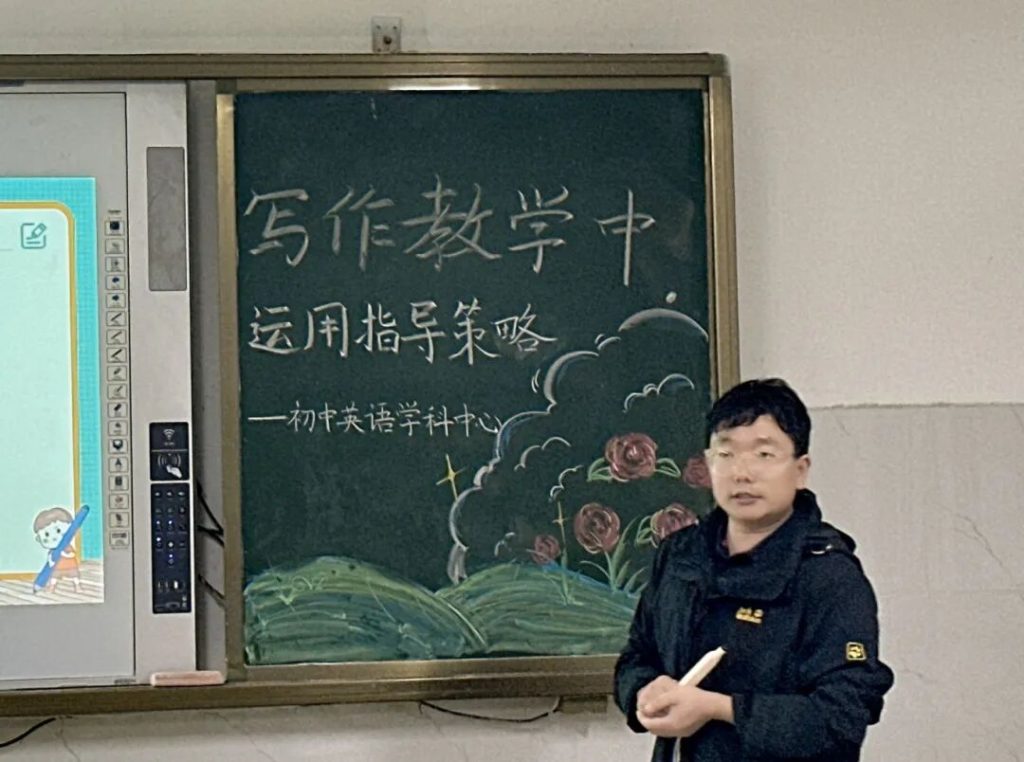 写作教学中
运用指导策略
—初中英语学科中心